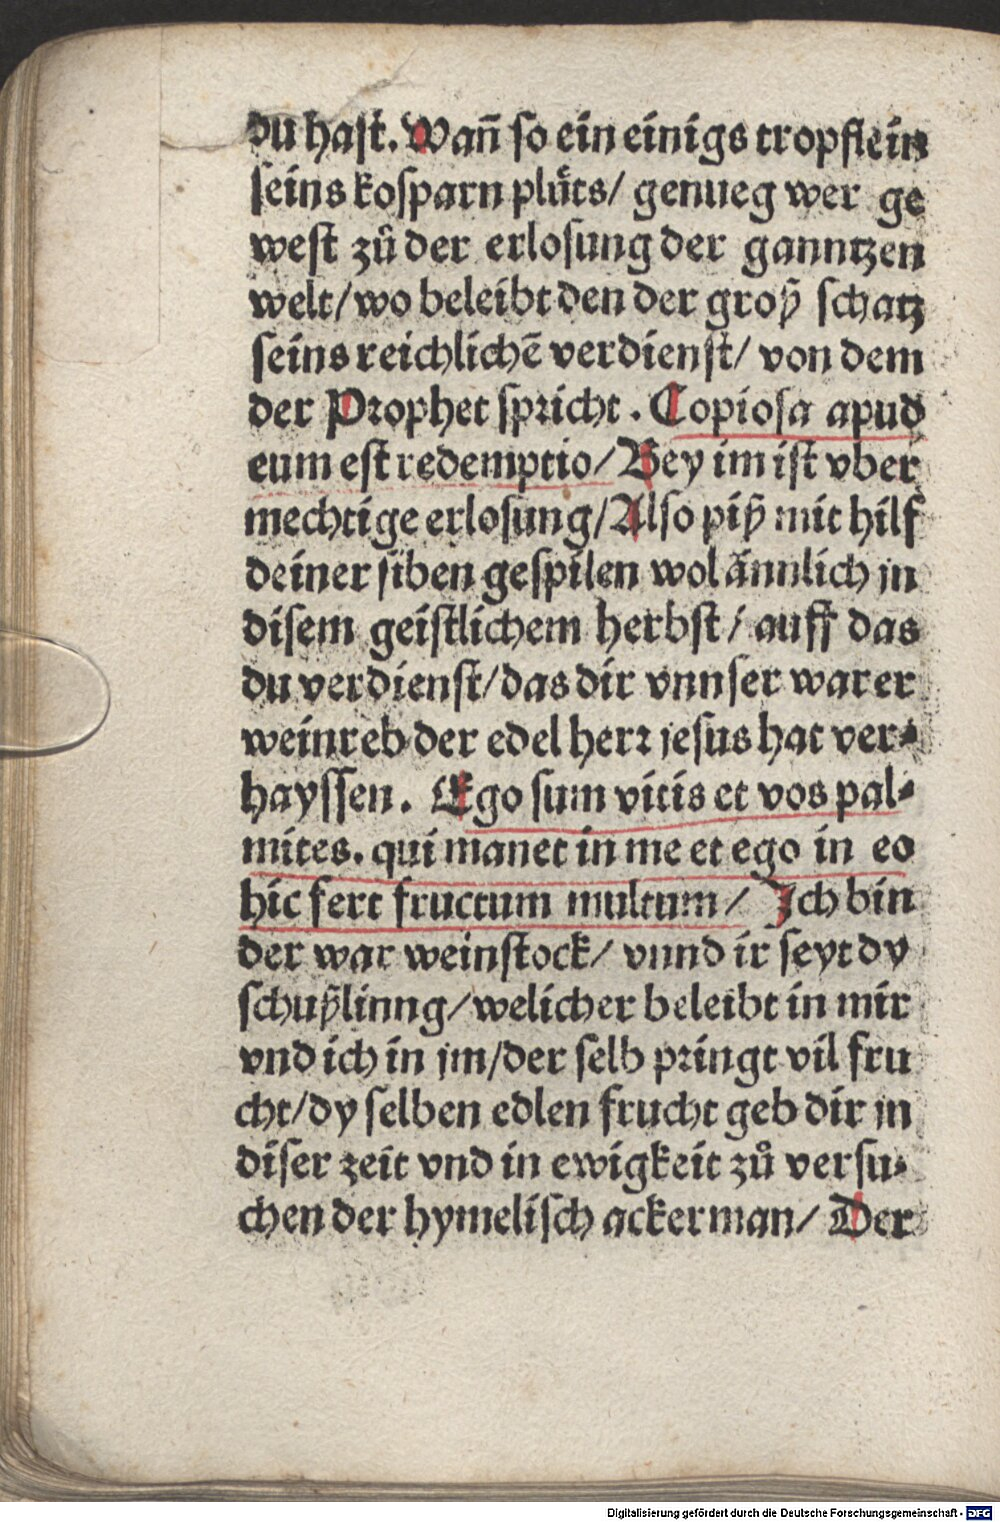 du hast. Wañ so ein einigs tropflein
seins kosparn plůts/ genueg wer ge
west zů der erlosung der ganntzen
welt/ wo beleibt den der groß schatz
seins reichlichē verdienst/ von dem
der Prophet spricht. Copiosa apud
eum est redemptio/ Bey im ist vber
mechtige erlosung/ Also piß mit hilf
deiner siben gespilen wol ännlich jn
disem geistlichem herbst/ auff das
du verdienst/ das dir vnnser warer
weinreb der edel herr jesus hat ver-
hayssen. Ego sum vitis et vos pal-
mites. qui manet in me et ego in eo
hic fert fructum multum/ Ich bin
der war weinstock/ vnnd ir seyt dy
schußlinng/ welicher beleibt in mir
vnd ich in jm/ der selb pringt vil fru
cht/ dy selben edlen frucht geb dir jn
diser zeit vnd in ewigkeit zů versu-
chen der hymelisch ackerman/ Der
Digitalisierung gefördert durch die Deutsche Forschungsgemeinschaft - DFG